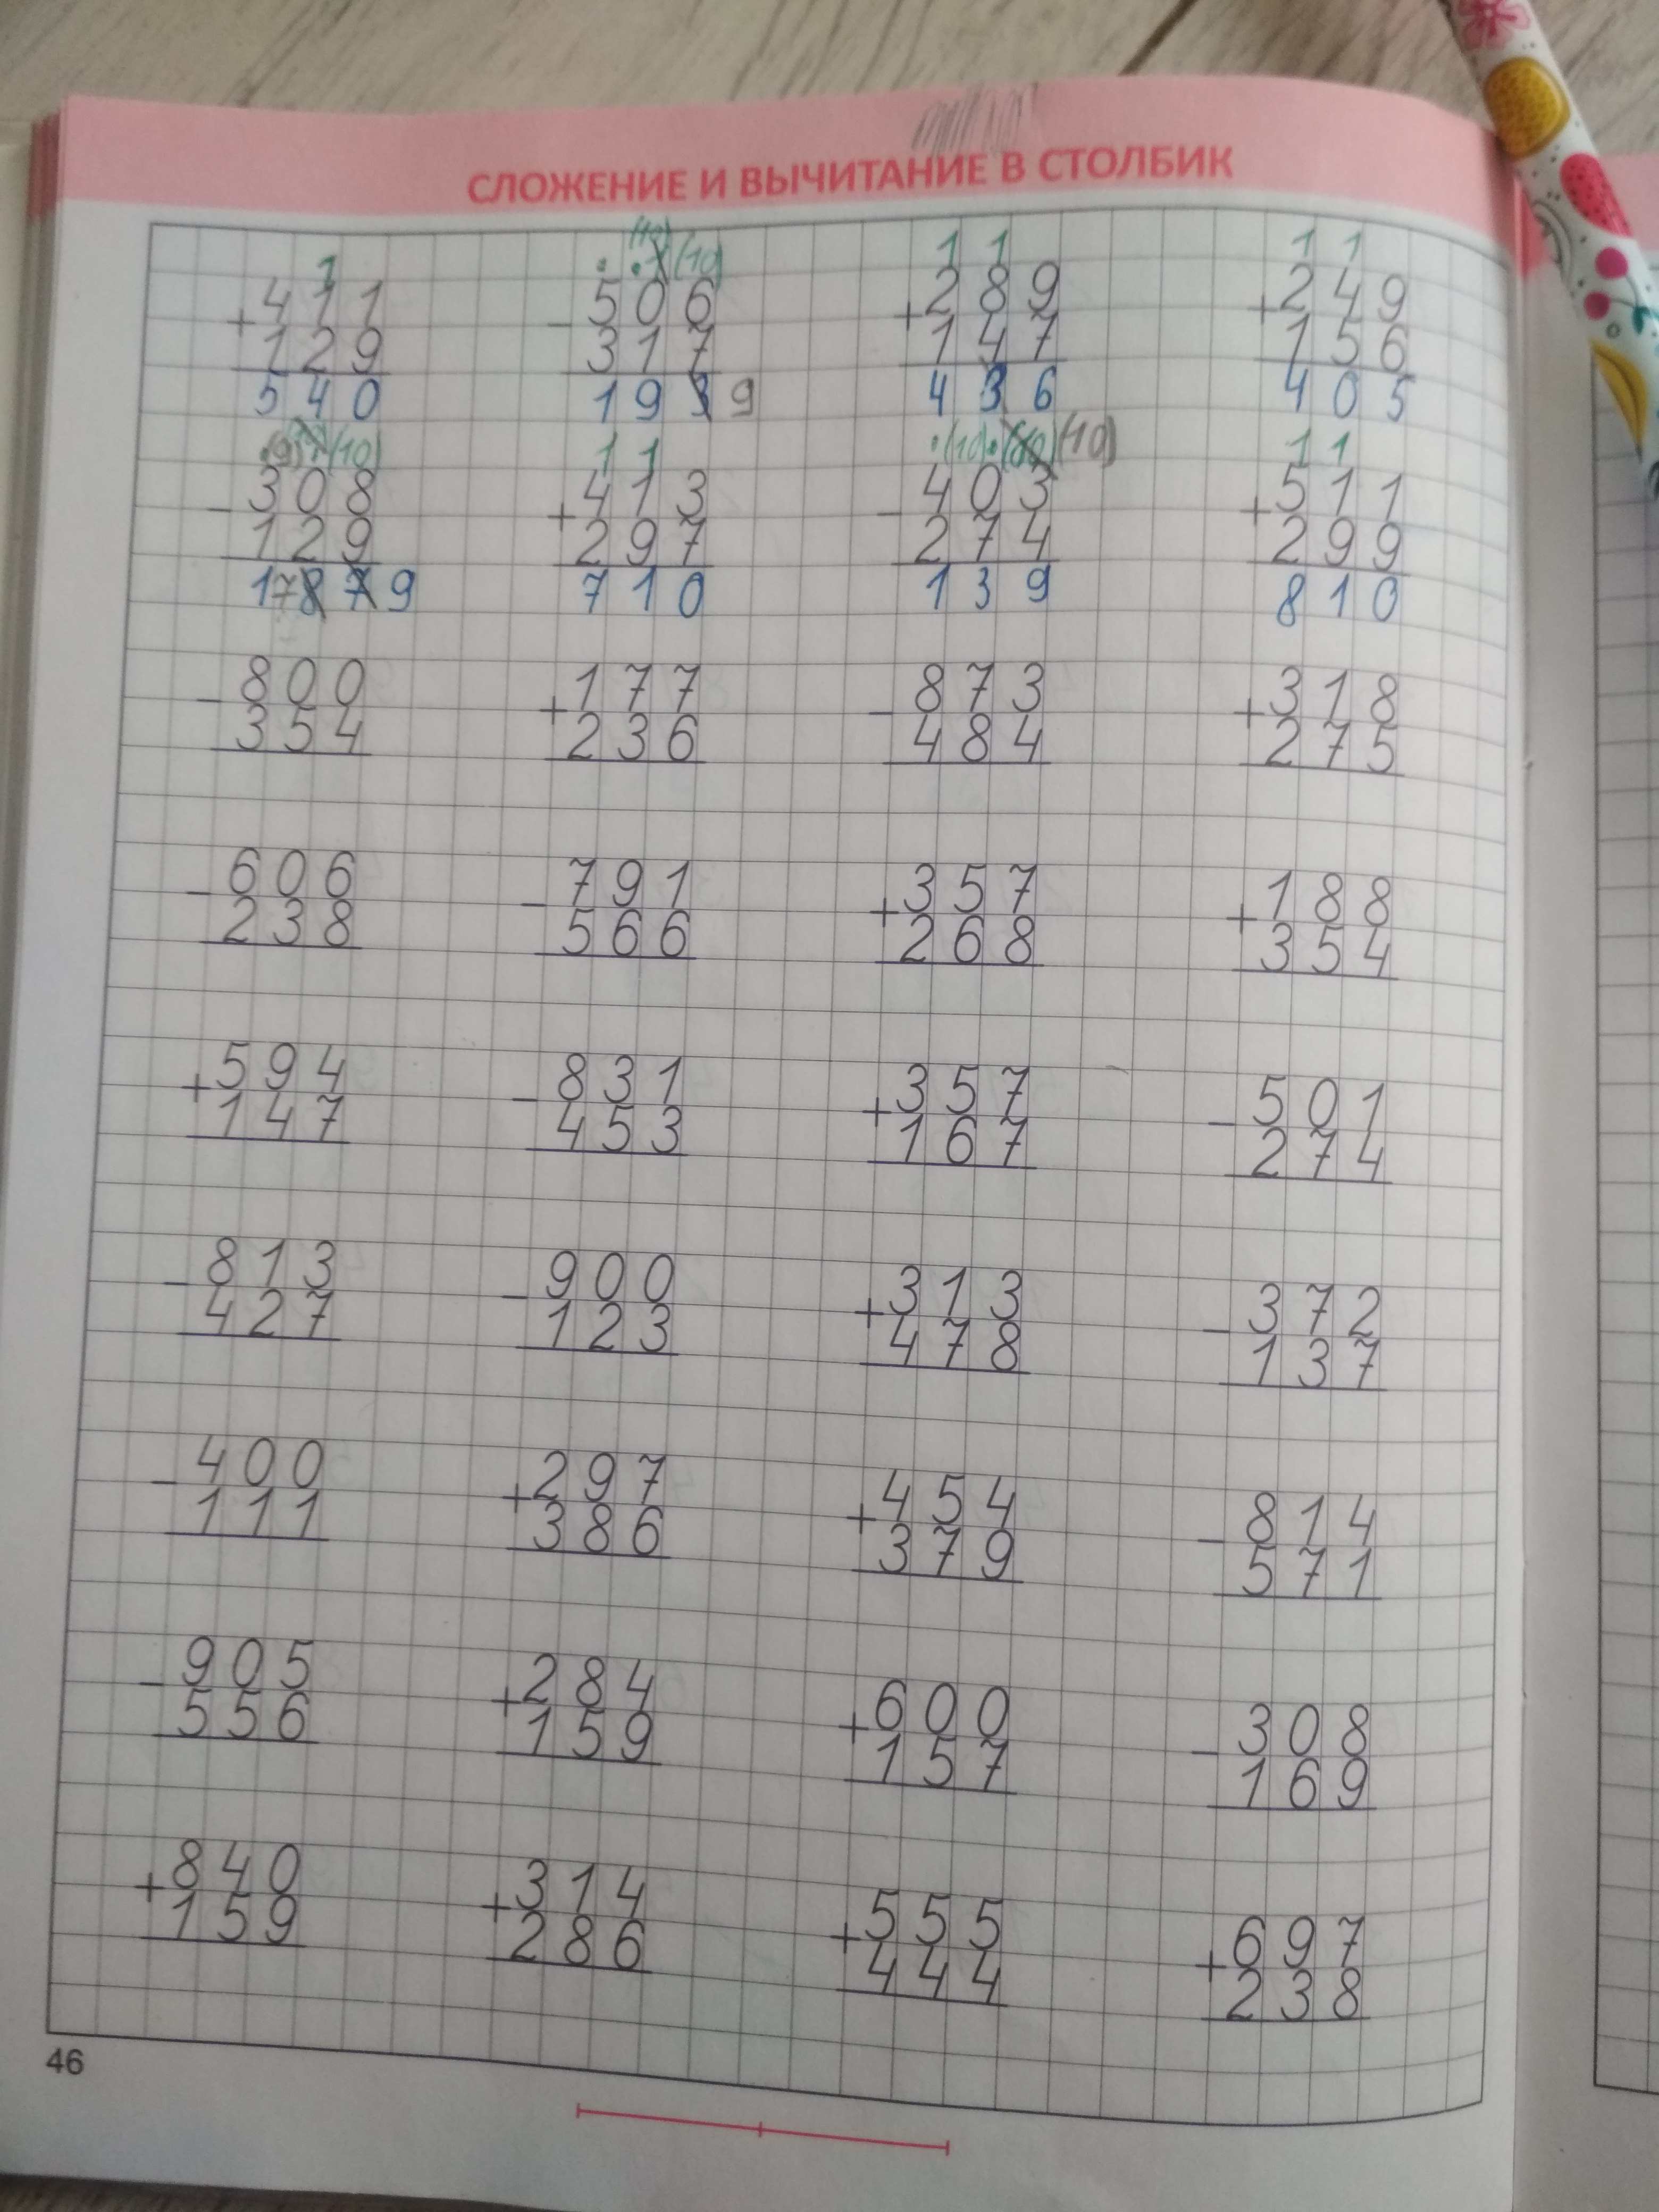 СЛОЖЕНИЕ И ВЫЧИТАНИЕ В СТОЛБИК
1 (10) . . 1 (10) 1 1 1 1
+ 411 - 506 + 289 + 249
129 317 147 156
540 19 9 436 405
. (9) . (10) 1 1 . (10) . (10) 1 1
- 308 + 413 - 403 + 511
129 297 274 299
17 9 710 139 810
- 800 + 177 - 873 + 318
354 236 484 275
- 606 - 791 + 357 + 188
238 566 268 354
+ 594 - 831 + 357 - 501
147 453 167 274
- 813 - 900 + 313 - 372
427 123 478 137
- 400 + 297 + 454 - 814
111 386 379 571
- 905 + 284 + 600 - 308
556 159 157 169
+ 840 + 314 + 555 + 697
159 286 444 238
46